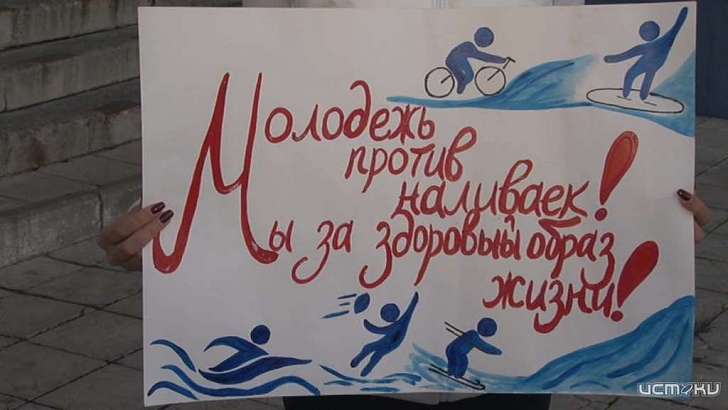 Молодежь
против
наливаек!
Мы за здоровый образ
жизни!
ИСТОКИ